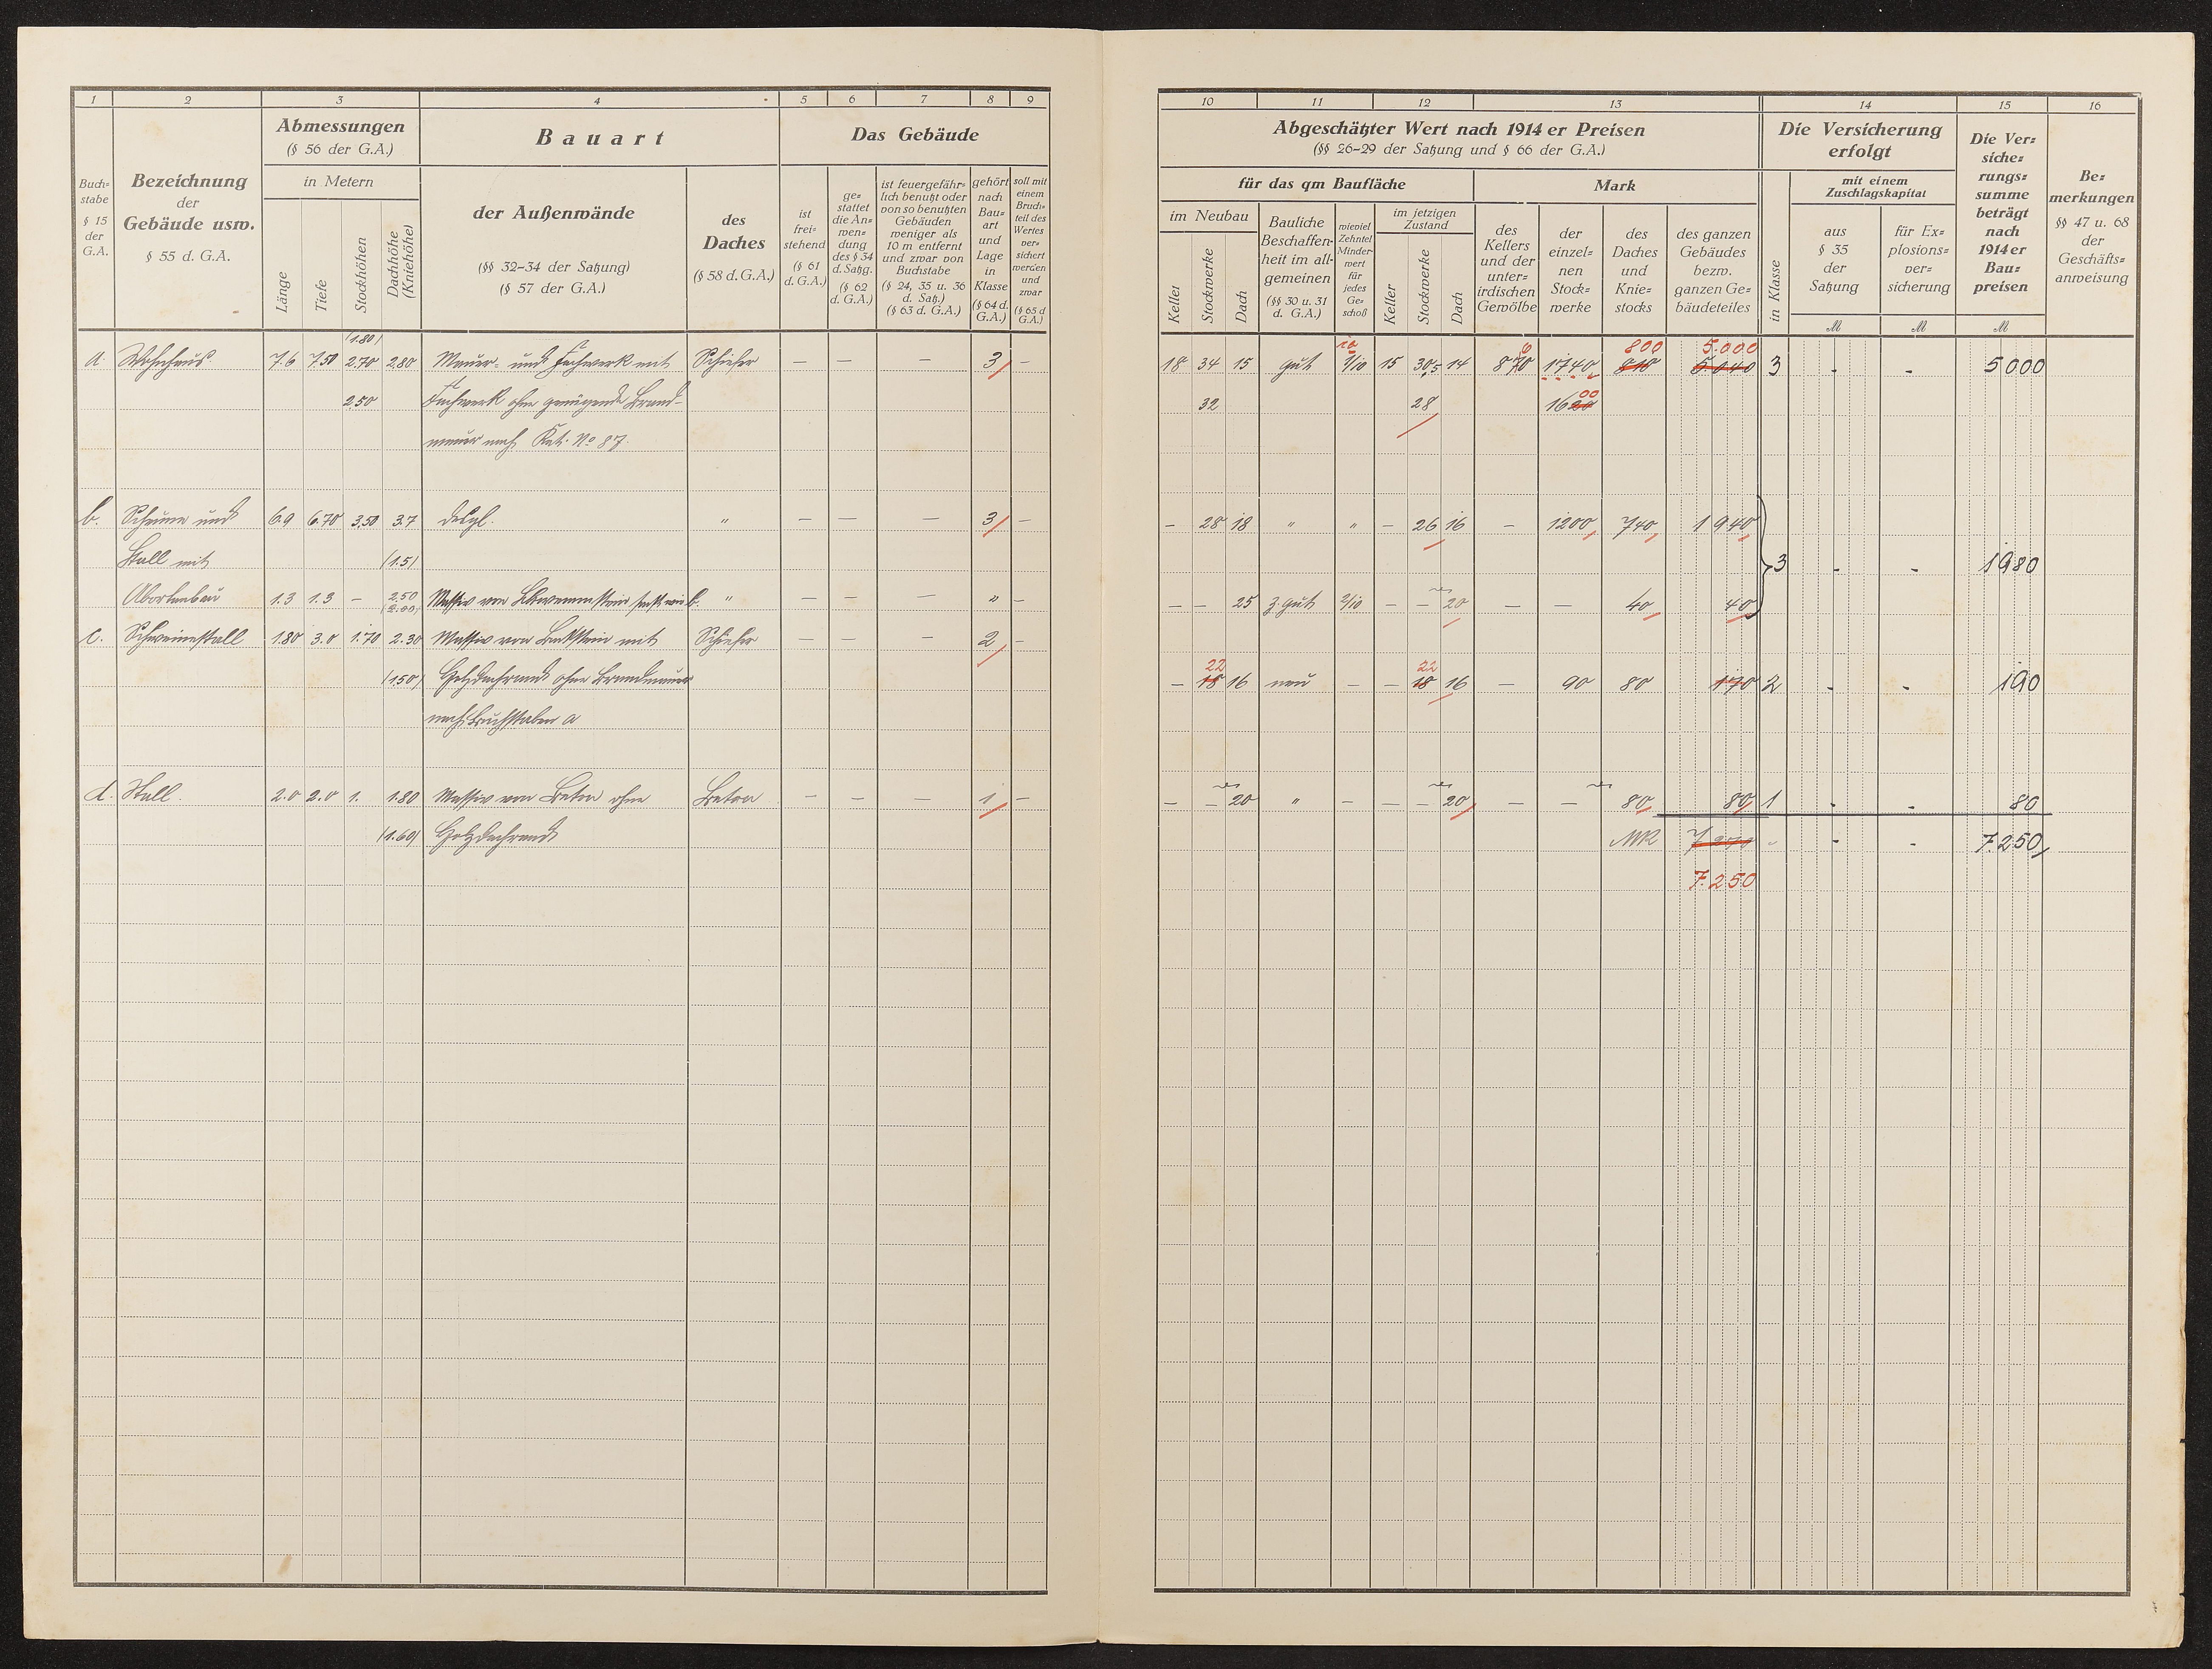 1 2 3 4 5 6 7 8 9
Buch=
stabe
§ 15
der
G.A.
Bezeichnung
der
Gebäude usw.
§ 55 d. G.A.
Abmessungen
(§ 56 der G.A.)
in Metern
Länge
Tiefe
Stockhöhen
Dachhöhe
(Kniehöhe)
Bauart
der Außenwände
(§§ 32–34 der Satzung)
(§ 57 der G.A.)
des
Daches
(§ 58 d. G.A.)
Das Gebäude
ist
frei=
stehend
(§ 61
d. G.A.)
ge=
stattet
die An=
wen=
dung
des § 34
d. Satzg.
(§ 62
d. G.A.)
ist feuergefähr=
lich benutzt oder
von so benutzten
Gebäuden
weniger als
10 m entfernt
und zwar von
Buchstabe
(§ 24, 35 u. 36
d. Satz.)
(§ 63 d. G.A.)
gehört
nach
Bau=
art
und
Lage
in
Klasse
(§ 64 d.
G.A.)
soll mit
einem
Bruch=
teil des
Wertes
ver=
sichert
werden
und
zwar
(§ 65 d
G.A.)
(1.80)
a. Wohnhaus. 7.6 7.50 2.70 2.80 Mauer- und Fachwerk mit Schiefer – – – 3 –
2.50 Fachwerk ohne genügende Brand-
mauer nach Kat. No 87.
b. Scheune und 6.9 6.70 3.50 3.7 desgl. " – – – 3 –
Stall mit (1.5)
Abortanbau 1.3 1.3 – 2.50 Massiv von Schwemmstein sonst wie b. " – – – " –
(2.00)
c. Schweinestall 1.80 3.0 1.70 2.30 Massiv von Backstein mit Schiefer – – – 2 –
(1.50) Holzdachrand ohne Brandmauer
nach Buchstaben a
d. Stall. 2.0 2.0 1. 1.80 Massiv von Beton ohne Beton – – – 1 –
(1.60) Holzdachrand
10 11 12 13 14 15 16
Abgeschätzter Wert nach 1914 er Preisen
(§§ 26–29 der Satzung und § 66 der G.A.)
für das qm Baufläche
Mark
im Neubau
Keller
Stockwerke
Dach
Bauliche
Beschaffen-
heit im all-
gemeinen
(§§ 30 u. 31
d. G.A.)
wieviel
Zehntel
Minder
wert
für
jedes
Ge=
schoß
im jetzigen
Zustand
Keller
Stockwerke
Dach
des
Kellers
und der
unter=
irdischen
Gewölbe
der
einzel=
nen
Stock=
werke
des
Daches
und
Knie=
stocks
des ganzen
Gebäudes
bezw.
ganzen Ge=
bäudeteiles
Die Versicherung
erfolgt
in Klasse
mit einem
Zuschlagskapital
aus
§ 35
der
Satzung
für Ex=
plosions=
ver=
sicherung
Die Ver=
siche=
rungs=
summe
beträgt
nach
1914 er
Bau=
preisen
Be=
merkungen
§§ 47 u. 68
der
Geschäfts=
anweisung
M M M
10 6 800 5.000
18 34 15 gut 1/10 15 30,5 14 870 1740 810 5 040 3 - - 5000
32 28 1620
00
– 28 18 " " – 26 16 – 1200 740 1940
3 - - 1980
– – 25 z. gut 2/10 – – 20 – – 40 40
22 22
– 18 16 neu – – 18 16 – 90 80 170 2 - - 190
– – 20 " – – – 20 – – 80 80 1 - - 80
MK - - 7.250
7.250